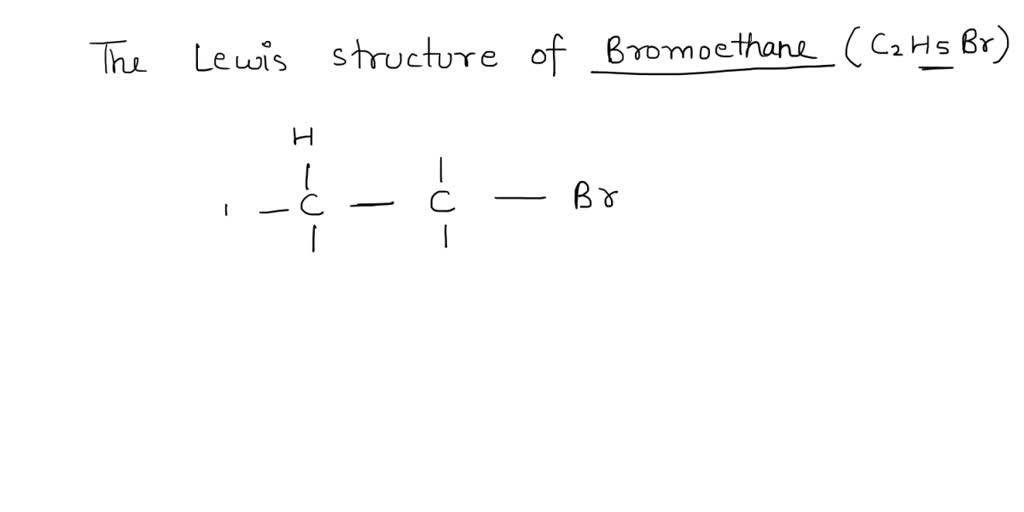 The Lewis structure of Bromoethane (C₂H₅Br)
H
| |
— C — C — Br
| |